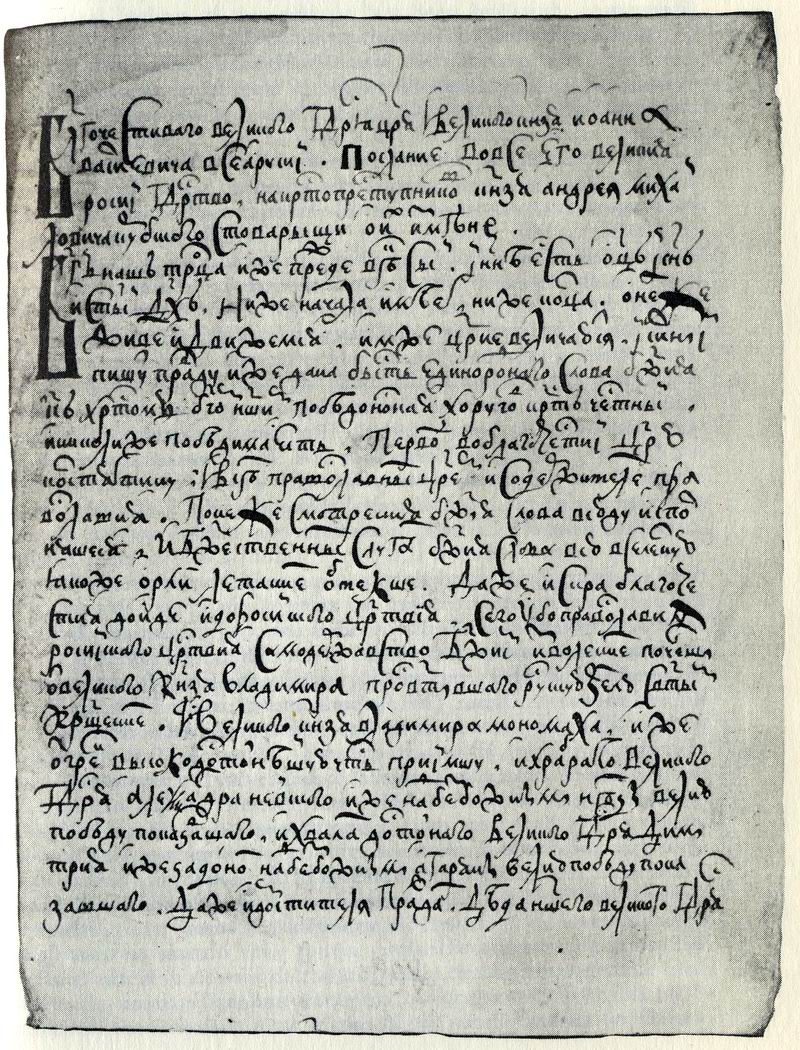 Бл҃гочестиваго великого гдр҃ѧ цр҃ѧ и великого кн҃зѧ иоанна
васильевича всеа русиі . Послание во все его великиа
росиі гдр҃тво , на крⷭ҇топреступнико кн҃зѧ андреѧ миха
иловича курбского с товарыщи о и҃ измѣне .
Бг҃ъ нашъ трⷪ҇ца иже прежде вѣ҃къ сы . і н҃нѣ есть ѡц҃ъ і сн҃ъ
и ст҃ыі дх҃ъ . ниже начала имѣетъ , ниже конца . о нежже
живе и движемсѧ . имже цр҃ие величаютсѧ . і силниі
пишу правду иже дана бысть единородного слова бж҃иѧ
іс҃ъ хрⷭ҇томъ бг҃о нши҃ побѣдоноснаѧ хоруго крⷭ҇тъ честныі ,
и николиже побѣдима есть . Перво во благочестиі цр҃ю
костѧнтину , и всѣ православны цр҃е и содержителе пра
вославиѧ . Понеже смотрениѧ бж҃иѧ слова всюду испо
нѧшесѧ , и бж҃ественны слуга бж҃иѧ слова всю вселенную
ꙗкоже орли летание ѡтекше . Даже и скра благоче
стиѧ дойде и до росиіского цр҃твиѧ . Сего убо православиѧ
росиіского цр҃твиѧ самодержавство бж҃иі изволение почеш
о великого кн҃зѧ владимира просвѣтившаго рускую землю ст҃ы
крщениеⷨ . и великого кн҃зѧ владимира мономаха , иже
ѡ гре высокодостоѣнѣшую чть приімшу , и храбраго великого
гдр҃ѧ александра невского иже на безбожными нѣмцы велию
побѣду показавшаго , и хвала достоінаго великого гдр҃ѧ дими
триѧ иже за доно на безбожными агаряны велию побѣду пока
завшаго . Даже и до мстителѧ неправда . дѣда ншего великого гдр҃ѧ